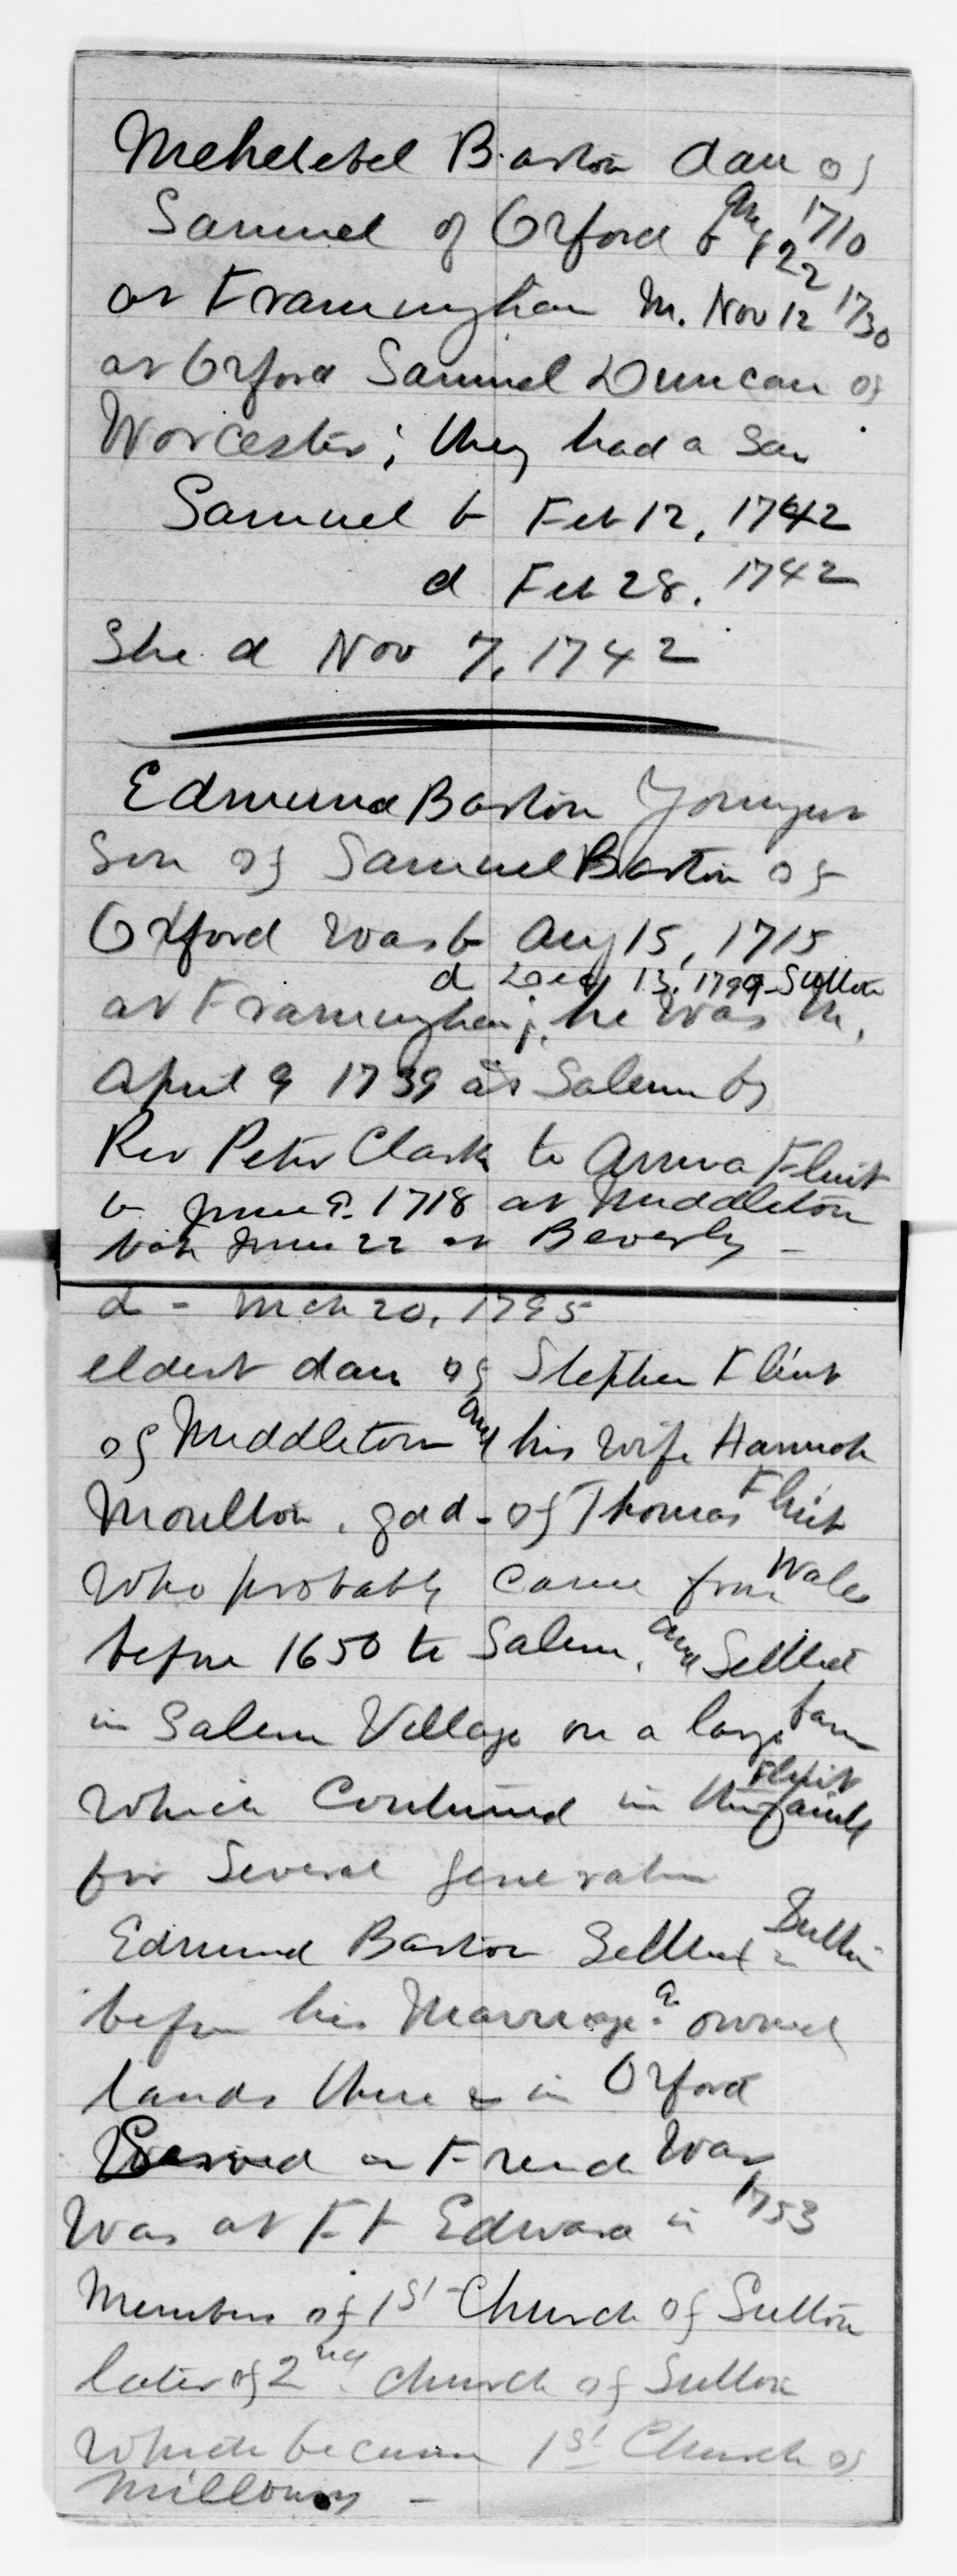 Mehetebel Barton dau of
Samuel of Oxford b 22 1710
at Framingham M. Nov 12 1730
at Oxford Samuel Duncan of
Worcester; they had a son
Samuel b Feb 12, 1742
d Feb 28, 1742
She d Nov 7, 1742
Edmund Barton Younger
Son of Samuel Barton of
Oxford was b Aug 15, 1715
d Dec 13, 1799 Sutton
at Framingham; he was m,
April 9 1739 at Salem by
Rev Peter Clark to Anna Flint
b June 9. 1718 at Middleton
June 22 at Beverly -
d - Mch 20, 1795
eldest dau of Stephen Flint
of Middleton and his wife Hannah
Moulton, gdd - of Thomas Flint
Who probably came from Wales
before 1650 to Salem, and Settled
in Salem Village on a large farm
which Continued in the Flint family
for Several generation
Edmund Barton Settled in Sutton
before his Marriage & owned
lands there & in Oxford
Served in French War
Was at Ft Edward in 1753
Member of 1st Church of Sutton
later of 2nd church of Sutton
Which became 1st Church of
Millbury -